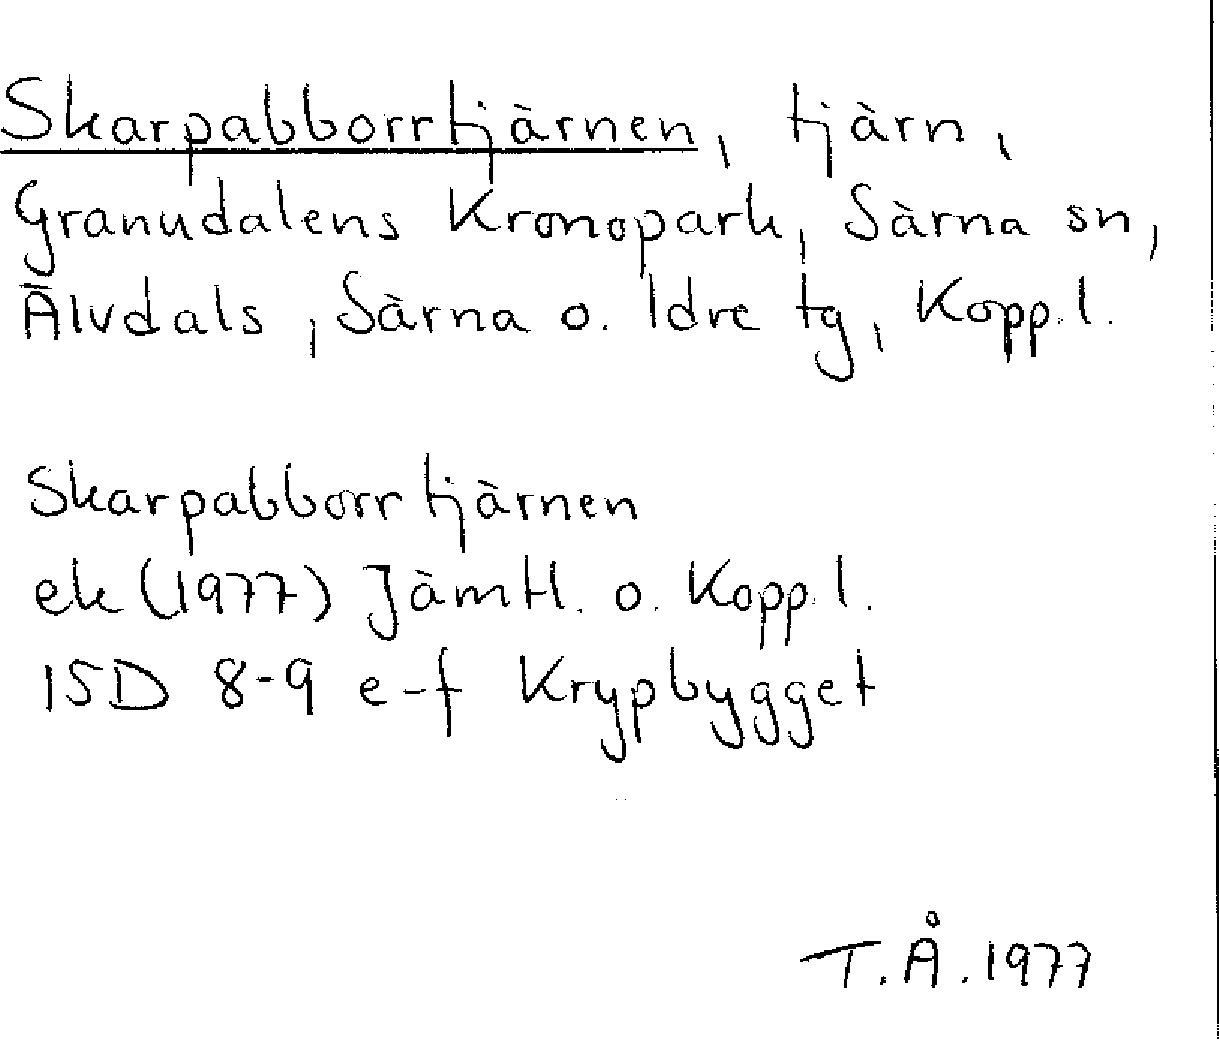 Skarpabborrtjärnen, tjärn,
Granudalens Kronopark, Särna sn,
Älvdals, Särna o. Idre tg, Kopp. l.
Skarpabborrtjärnen
ek (1977) Jämtl. o. Kopp. l.
15D 8-9 e-f Krypbygget
T.Å. 1977